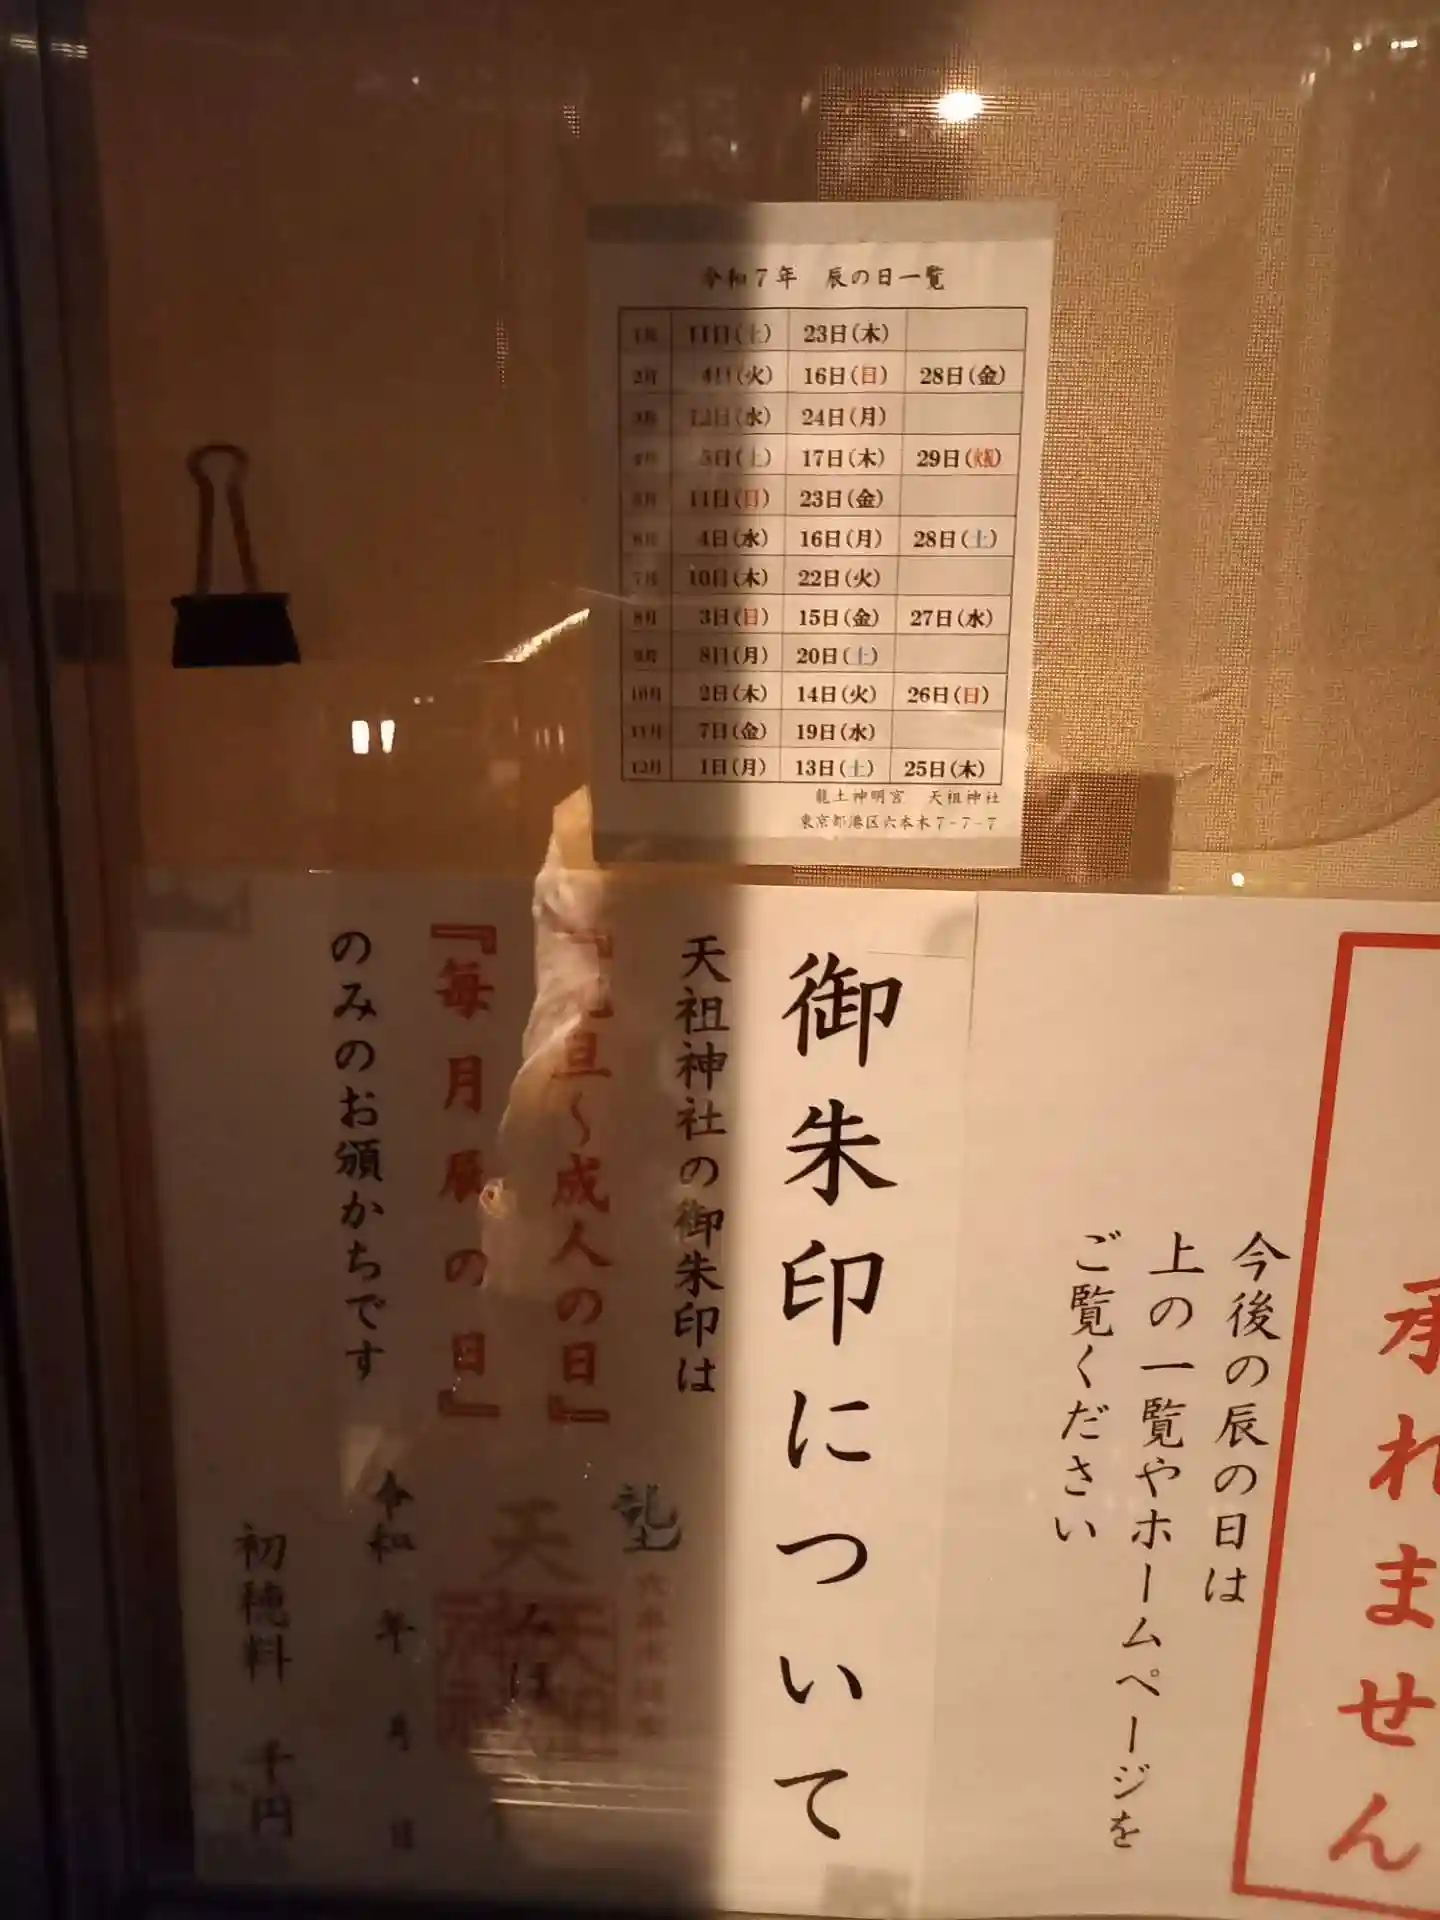 令和7年 辰の日一覧
1月 11日(土) 23日(木)
2月 4日(火) 16日(日) 28日(金)
3月 12日(水) 24日(月)
4月 5日(土) 17日(木) 29日(火祝)
5月 11日(日) 23日(金)
6月 4日(水) 16日(月) 28日(土)
7月 10日(木) 22日(火)
8月 3日(日) 15日(金) 27日(水)
9月 8日(月) 20日(土)
10月 2日(木) 14日(火) 26日(日)
11月 7日(金) 19日(水)
12月 1日(月) 13日(土) 25日(木)
龍土神明宮 天祖神社
東京都港区六本木7-7-7
承れません
今後の辰の日は
上の一覧やホームページを
ご覧ください
御朱印について
天祖神社の御朱印は
『元旦〜成人の日』
『毎月辰の日』
のみのお頒かちです
龍土
天
令和 年 月 日
初穂料 千円